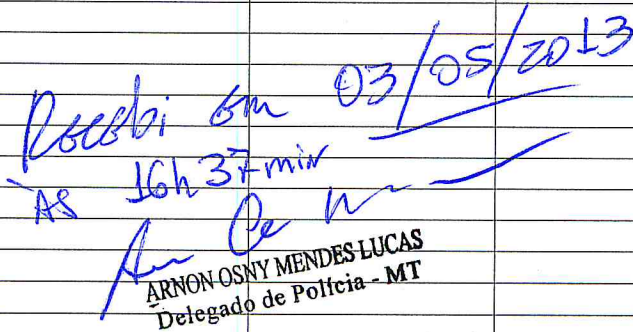 Recebi em 03/05/2013
às 16h37min
ARNON OSNY MENDES LUCAS
Delegado de Polícia - MT